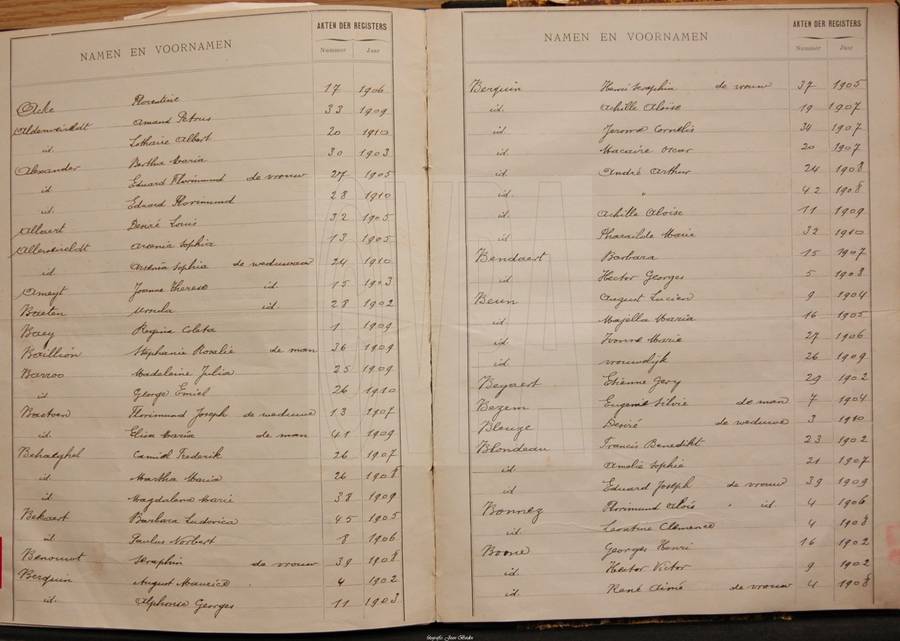 AKTEN DER REGISTERS
NAMEN EN VOORNAMEN
Nummer Jaar
Acke Florentine 17 1906
Aldenweireldt Amand Petrus 33 1909
id. Lothaire Albert 20 1910
Alexander Bertha Maria 30 1903
id. Eduard Florimund de vrouw 27 1905
id. Eduard Florimund 28 1910
Allaert Desiré Louis 32 1905
Allemeireldt Arsenia Sophia 13 1905
id. Arsenia Sophia de weduwaar 24 1910
Ameyt Joanna Therese id. 15 1903
Baelen Ursula id. 28 1902
Baey Regina Coleta 1 1909
Baillion Stephanie Rosalie de man 36 1909
Barroo Madeleine Julia 25 1909
id. George Emiel 26 1910
Baetven Florimund Joseph de weduwe 13 1907
id. Elisa Maria de man 41 1909
Behaeghel Camiel Frederik 26 1907
id. Martha Maria 26 1908
id. Magdalena Marie 38 1909
Bekaert Barbara Ludovica 45 1905
id. Paulus Norbert 8 1906
Benouwt Seraphin de vrouw 39 1908
Berquin August Maurice 4 1902
id. Alphonse Georges 11 1903
AKTEN DER REGISTERS
NAMEN EN VOORNAMEN
Nummer Jaar
Berquin Henri Seraphin de vrouw 37 1905
id. Achille Aloise 19 1907
id. Jerome Cornelis 34 1907
id. Macaire Oscar 20 1907
id. André Arthur 24 1908
id. " 42 1908
id. Achille Aloise 11 1909
id. Pharailde Marie 32 1910
Bendaert Barbara 15 1907
id. Hector Georges 5 1908
Beun August Lucien 9 1904
id. Majella Maria 16 1905
id. Ivonne Marie 27 1906
id. vrouwelijk 26 1909
Beyaert Etienne Gery 29 1902
Bezem Eugenie Silvie de man 7 1904
Bleuze Desiré de weduwe 3 1910
Blondeau Francis Benedikt 23 1902
id. Amelie Sophie 21 1907
id. Eduard Joseph de vrouw 39 1909
Bonnez Florimund Aloïs " id. 4 1906
id. Leontine Clemence 4 1908
Boone Georges Henri 16 1902
id. Hector Victor 9 1902
id. René Aimé de vrouw 4 1908